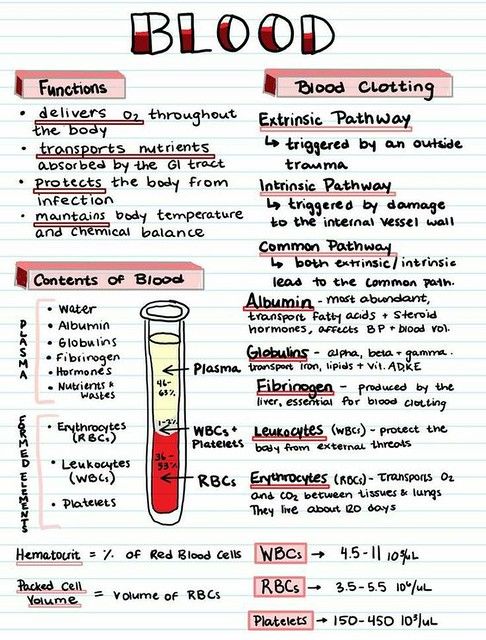 BLOOD
Functions
• delivers O₂ throughout
the body
• transports nutrients
absorbed by the GI tract
• protects the body from
infection
• maintains body temperature
and chemical balance
Blood Clotting
Extrinsic Pathway
↳ triggered by an outside
trauma
Intrinsic Pathway
↳ triggered by damage
to the internal vessel wall
Common Pathway
↳ both extrinsic/intrinsic
lead to the common path.
Contents of Blood
PLASMA
• Water
• Albumin
• Globulins
• Fibrinogen
• Hormones
• Nutrients &
Wastes
FORMED ELEMENTS
• Erythrocytes
(RBCs)
• Leukocytes
(WBCs)
• Platelets
46-
63%
1-2%
36-
53%
Plasma
WBCs +
Platelets
RBCs
Albumin - most abundant,
transport fatty acids + steroid
hormones, affects BP + blood vol.
Globulins - alpha, beta + gamma.
transport iron, lipids + vit. ADKE
Fibrinogen - produced by the
liver, essential for blood clotting
Leukocytes (WBCs) - protect the
body from external threats
Erythrocytes (RBCs) - Transports O₂
and CO₂ between tissues & lungs
They live about 120 days
Hematocrit = % of Red Blood Cells
Packed Cell
Volume = Volume of RBCs
WBCs → 4.5-11 10³/uL
RBCs → 3.5-5.5 10⁶/uL
Platelets → 150-450 10³/uL